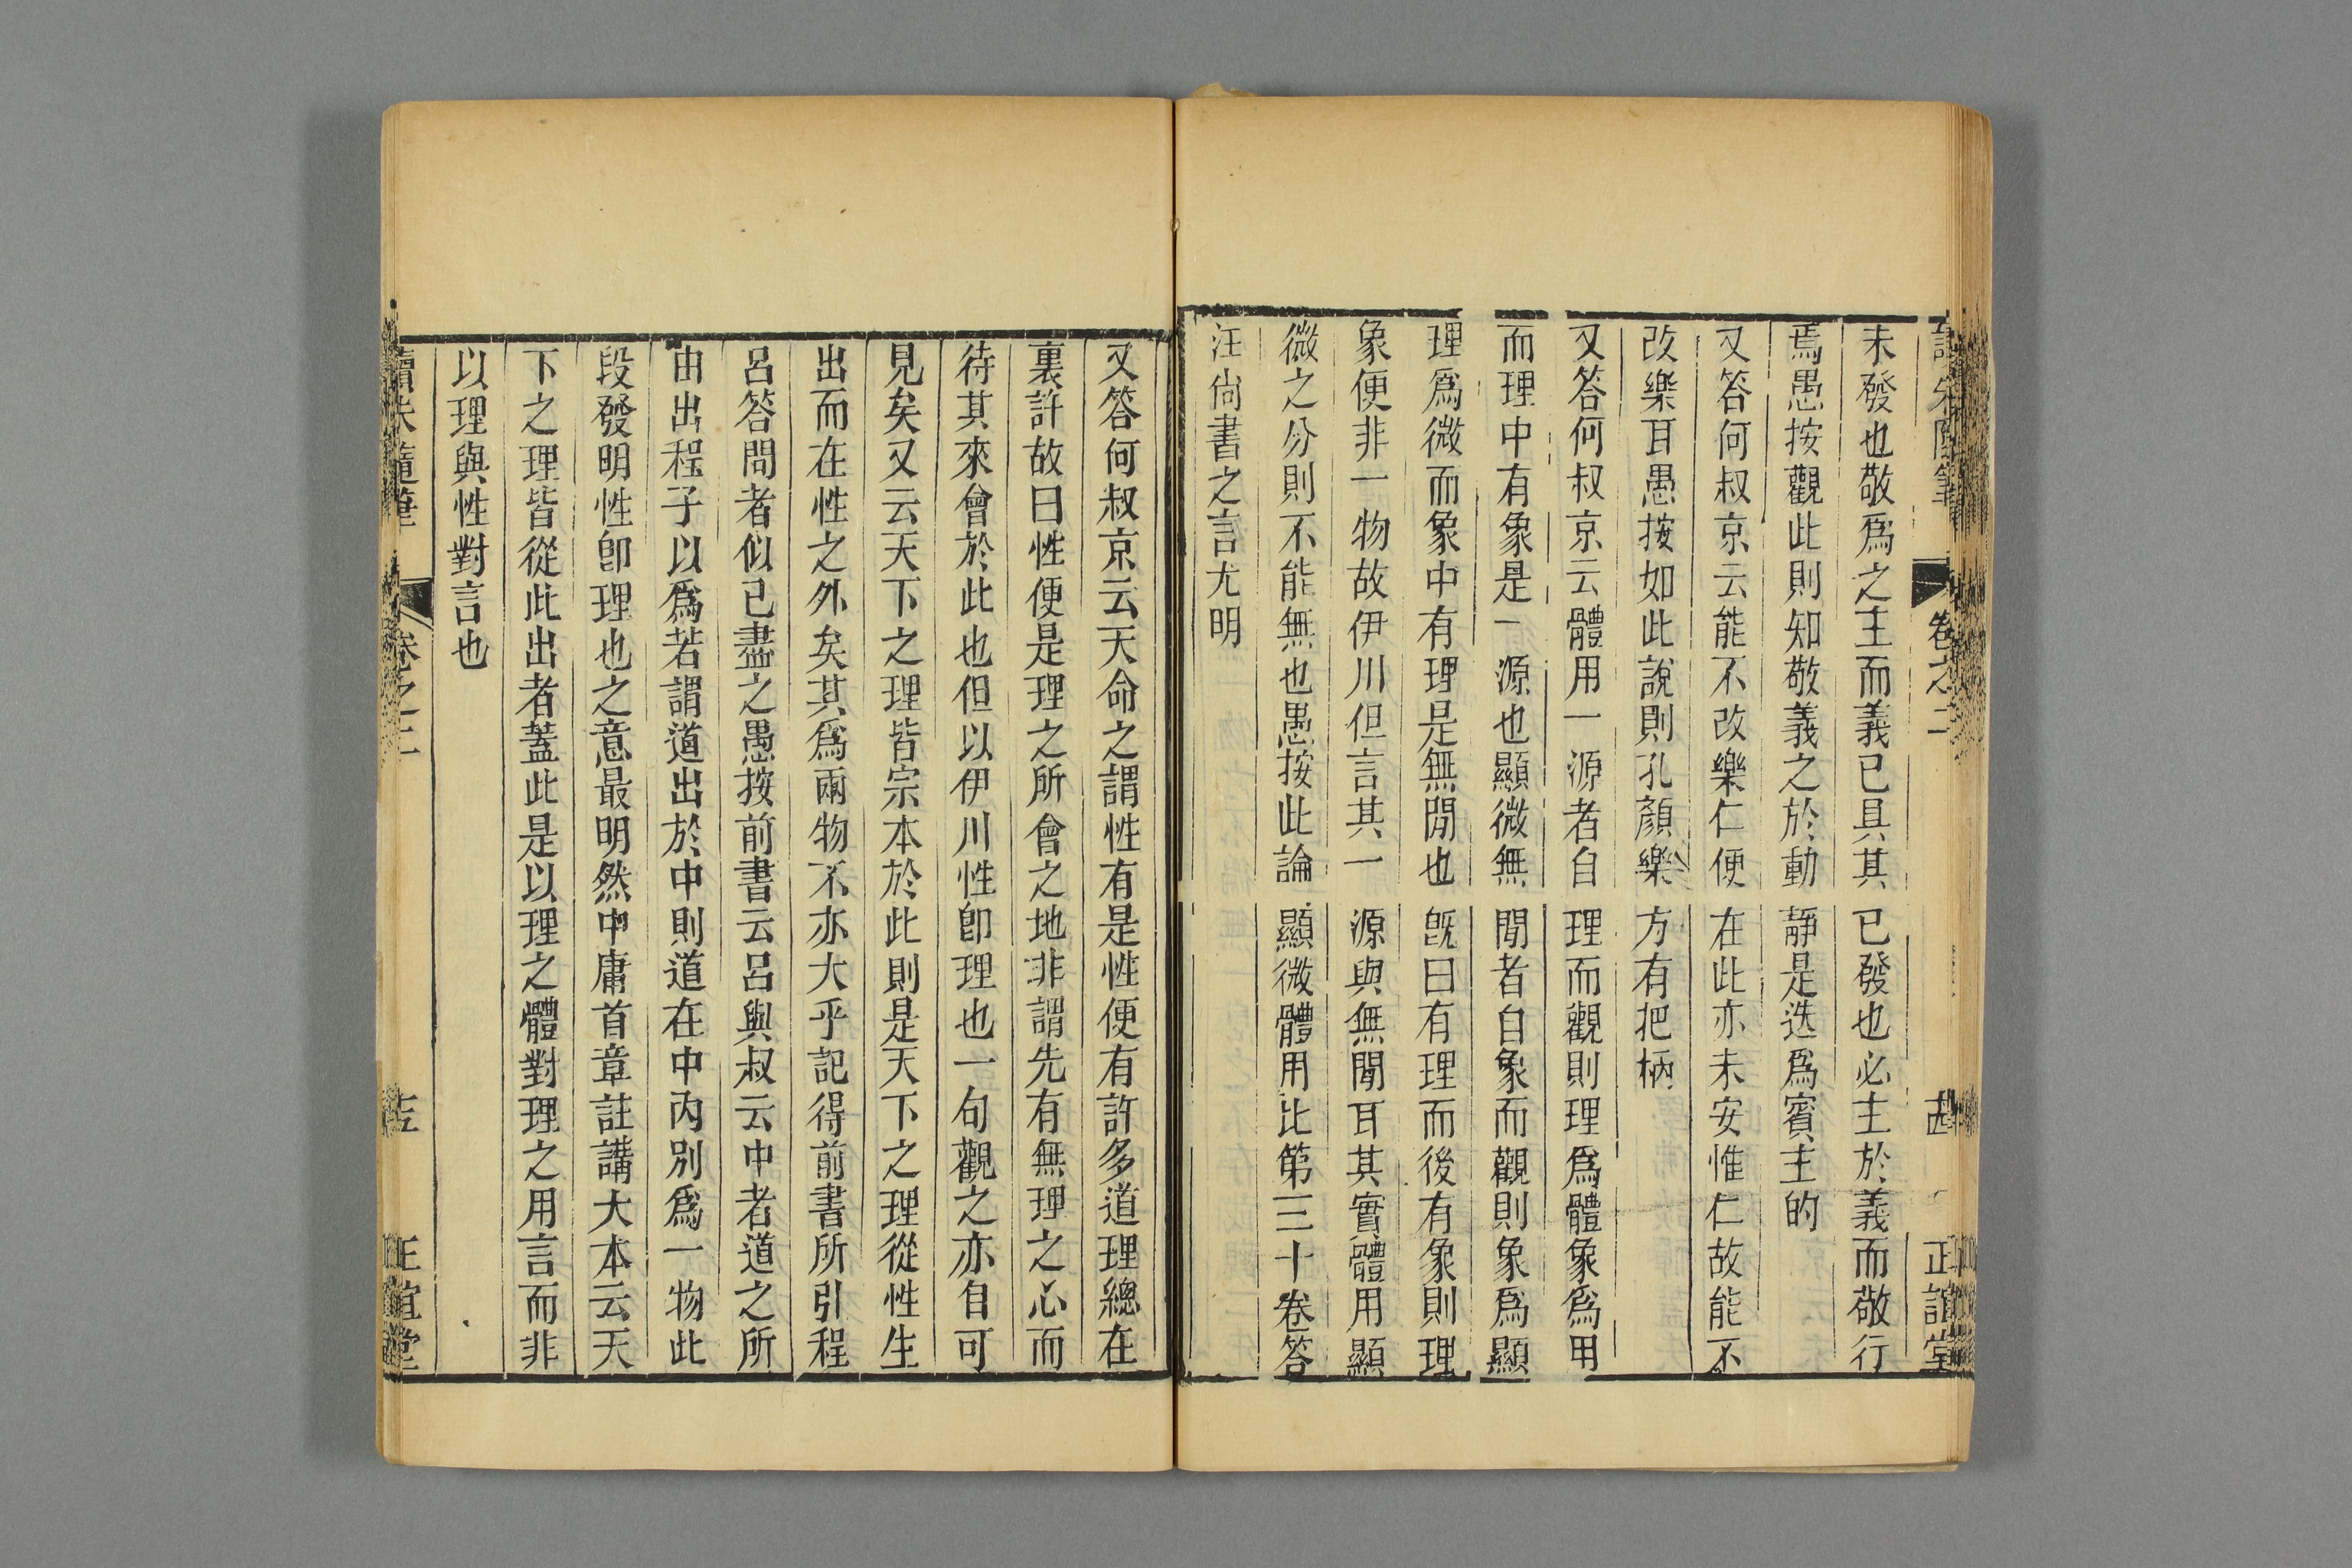 讀朱隨筆 卷之二 正誼堂
未發也敬爲之主而義已具其已發也必主於義而敬行
焉愚按觀此則知敬義之於動靜是迭爲賓主的
又答何叔京云能不改樂仁便在此亦未安惟仁故能不
改樂耳愚按如此說則孔顏樂方有把柄
又答何叔京云體用一源者自理而觀則理爲體象爲用
而理中有象是一源也顯微無間者自象而觀則象爲顯
理爲微而象中有理是無閒也旣曰有理而後有象則理
象便非一物故伊川但言其一源與無閒耳其實體用顯
微之分則不能無也愚按此論顯微體用比第三十卷答
汪尙書之言尤明
又答何叔京云天命之謂性有是性便有許多道理總在
裏許故曰性便是理之所會之地非謂先有無理之心而
待其來會於此也但以伊川性卽理也一句觀之亦自可
見矣又云天下之理皆宗本於此則是天下之理從性生
出而在性之外矣其爲兩物不亦大乎記得前書所引程
呂答問者似已盡之愚按前書云呂與叔云中者道之所
由出程子以爲若謂道出於中則道在中內別爲一物此
段發明性卽理也之意最明然中庸首章註講大本云天
下之理皆從此出者蓋此是以理之體對理之用言而非
以理與性對言也
讀朱隨筆 卷之二 正誼堂